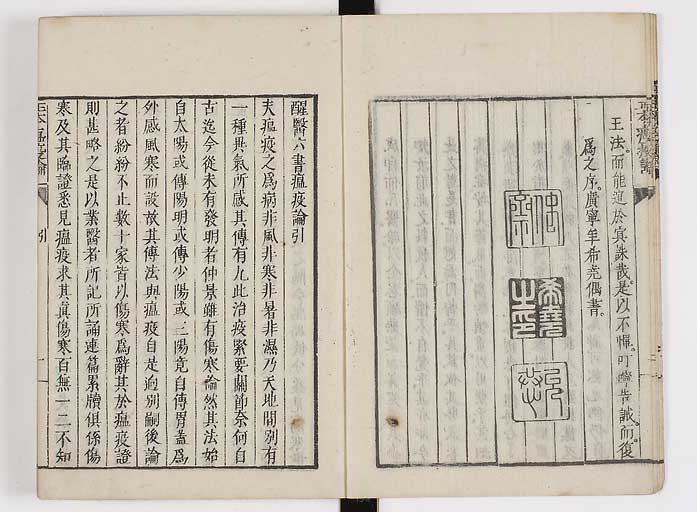 王法。而能逭於冥誅哉。是以不憚。叮嚀告誡。而復
爲之序。廣寧年希堯偶書。
希堯
之印
醒醫六書瘟疫論引
夫瘟疫之爲病非風非寒非暑非濕乃天地間別有
一種異氣所感其傳有九此治疫緊要關節奈何自
古迄今從未有發明者仲景雖有傷寒論然其法始
自太陽或傳陽明或傳少陽或三陽竟自傳胃葢爲
外感風寒而設故其傳法與瘟疫自是迥別嗣後論
之者紛紛不止數十家皆以傷寒爲辭其於瘟疫證
則甚略之是以業醫者所記所誦連篇累牘俱係傷
寒及其臨證悉見瘟疫求其眞傷寒百無一二不知
引